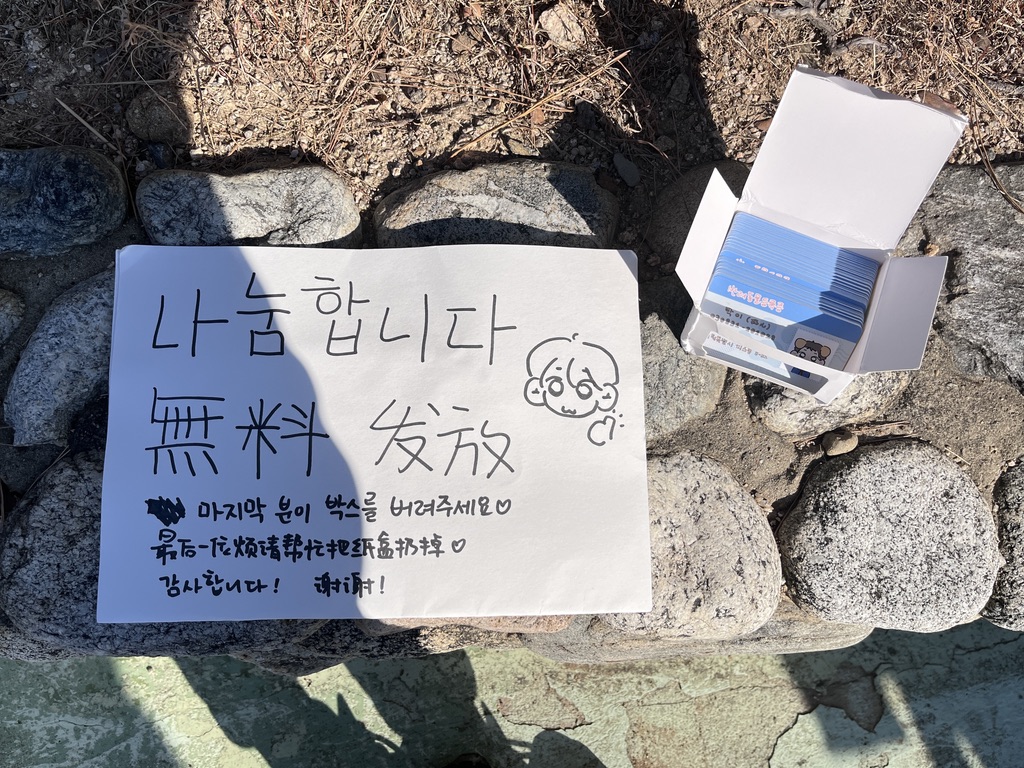 나눔합니다
無料 发放
마지막 분이 박스를 버려주세요♡
最后一位烦请帮忙把纸盒扔掉♡
감사합니다! 谢谢!